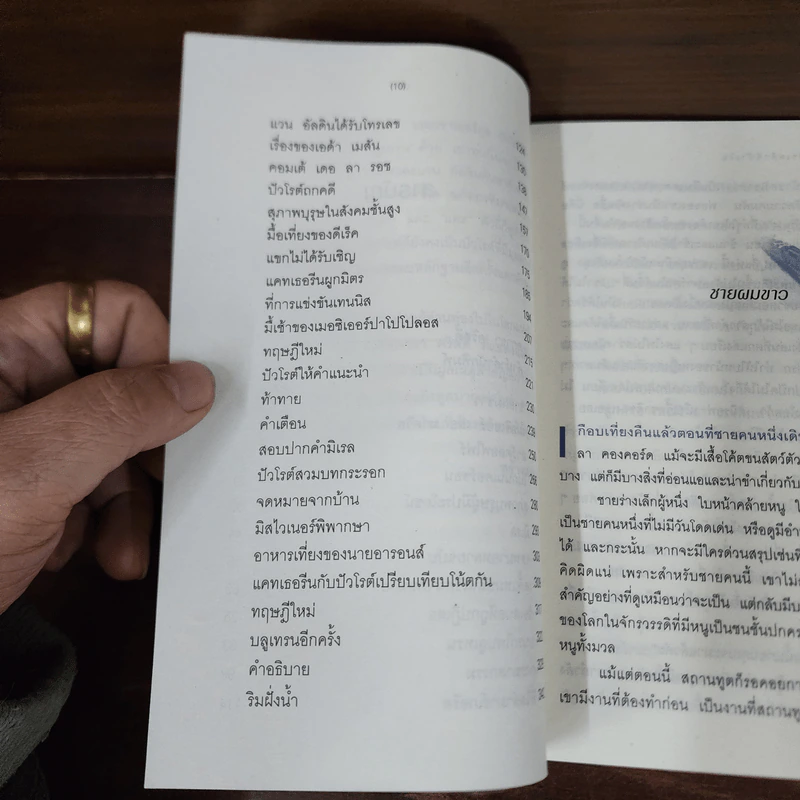 (10)
แวน อัลดินได้รับโทรเลข
เรื่องของเอด้า เมสัน
คอมเต้ เดอ ลา รอช 136
ปัวโรต์ถกคดี 138
สุภาพบุรุษในสังคมชั้นสูง 147
มื้อเที่ยงของดีเร็ค 157
แขกไม่ได้รับเชิญ 170
แคทเธอรีนผูกมิตร 175
ที่การแข่งขันเทนนิส 185
มื้เช้าของเมอซิเออร์ปาโปโปลอส 194
ทฤษฎีใหม่ 207
ปัวโรต์ให้คำแนะนำ 215
ท้าทาย 221
คำเตือน 230
สอบปากคำมิเรล 239
ปัวโรต์สวมบทกระรอก
จดหมายจากบ้าน
มิสไวเนอร์พิพากษา
อาหารเที่ยงของนายอารอนส์
แคทเธอรีนกับปัวโรต์เปรียบเทียบโน้ตกัน
ทฤษฎีใหม่
บลูเทรนอีกครั้ง
คำอธิบาย
ริมฝั่งน้ำ
ชายผมขาว
กือบเที่ยงคืนแล้วตอนที่ชายคนหนึ่งเดิ
ลา คองคอร์ด แม้จะมีเสื้อโค้ตขนสัตว์ตัว
บาง แต่ก็มีบางสิ่งที่อ่อนแอและน่าขำเกี่ยวกับ
ชายร่างเล็กผู้หนึ่ง ใบหน้าคล้ายหนู
เป็นชายคนหนึ่งที่ไม่มีวันโดดเด่น หรือดูมีอำ
ได้ และกระนั้น หากจะมีใครด่วนสรุปเช่น
คิดผิดแน่ เพราะสำหรับชายคนนี้ เขาไม่
สำคัญอย่างที่ดูเหมือนว่าจะเป็น แต่กลับมีบ
ของโลกในจักรวรรดิที่มีหนูเป็นชนชั้นปกคร
หนูทั้งมวล
แม้แต่ตอนนี้ สถานทูตก็รอคอยกา
เขามีงานที่ต้องทำก่อน เป็นงานที่สถานทู